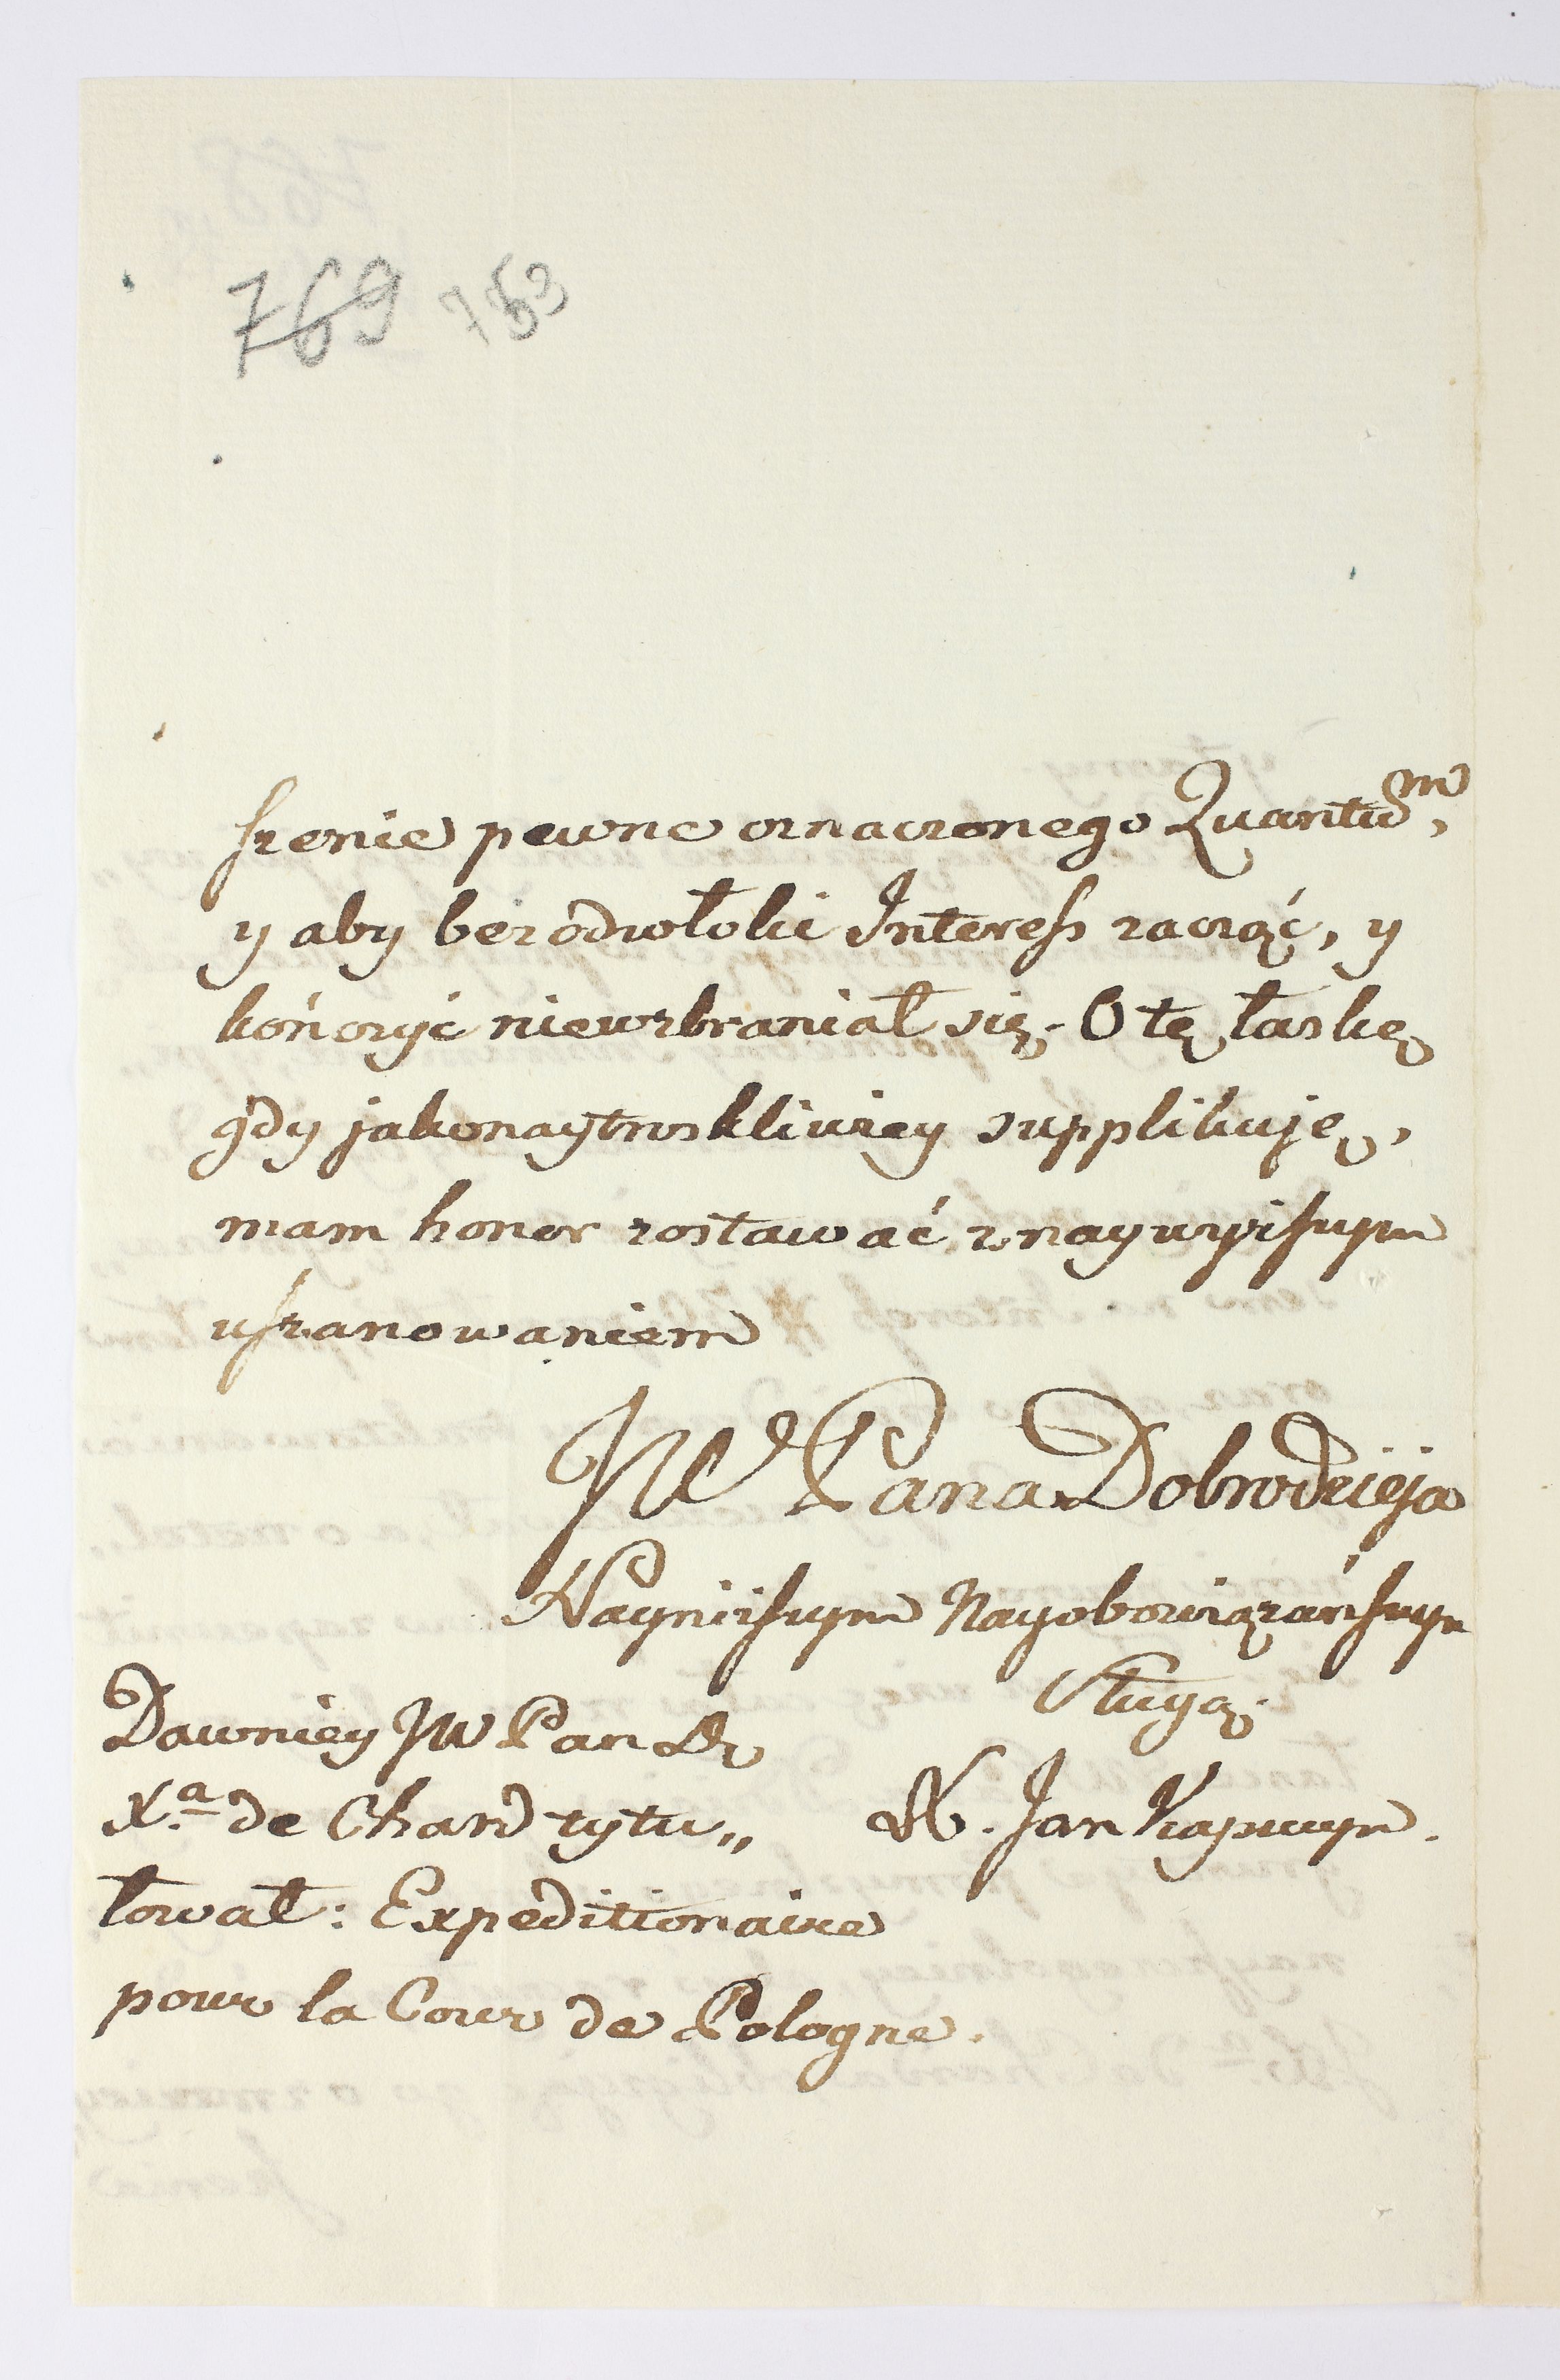 769 753
szenie pewne oznaczonego Quantum,
y aby bez odwłoki Interess zacząć, y
kończyć niewzbraniał się. O tę łaskę
gdy jakonaytroskliwiey supplikuję,
mam honor zostawać z naywyższym
uszanowaniem
JW Pana Dobrodzieja
Nayniższym Nayobowiązańszym
Sługą.
Dawniey JW Pan Dr
Xa de Chard tytu„
łował: Expeditionaire
pour la Cour de Pologne.
X. Jan Kapucyn.